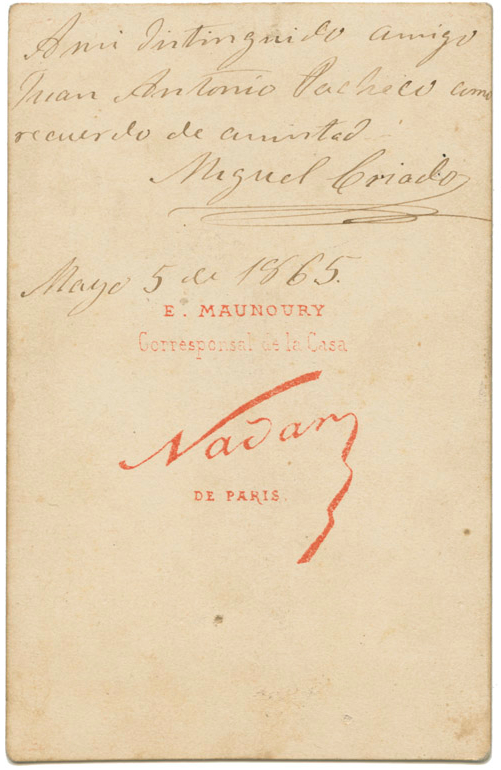 A mi distinguido amigo
Juan Antonio Pacheco como
recuerdo de amistad
Miguel Criado
Mayo 5 de 1865.
E. MAUNOURY
Corresponsal de la Casa
Nadar
DE PARIS.